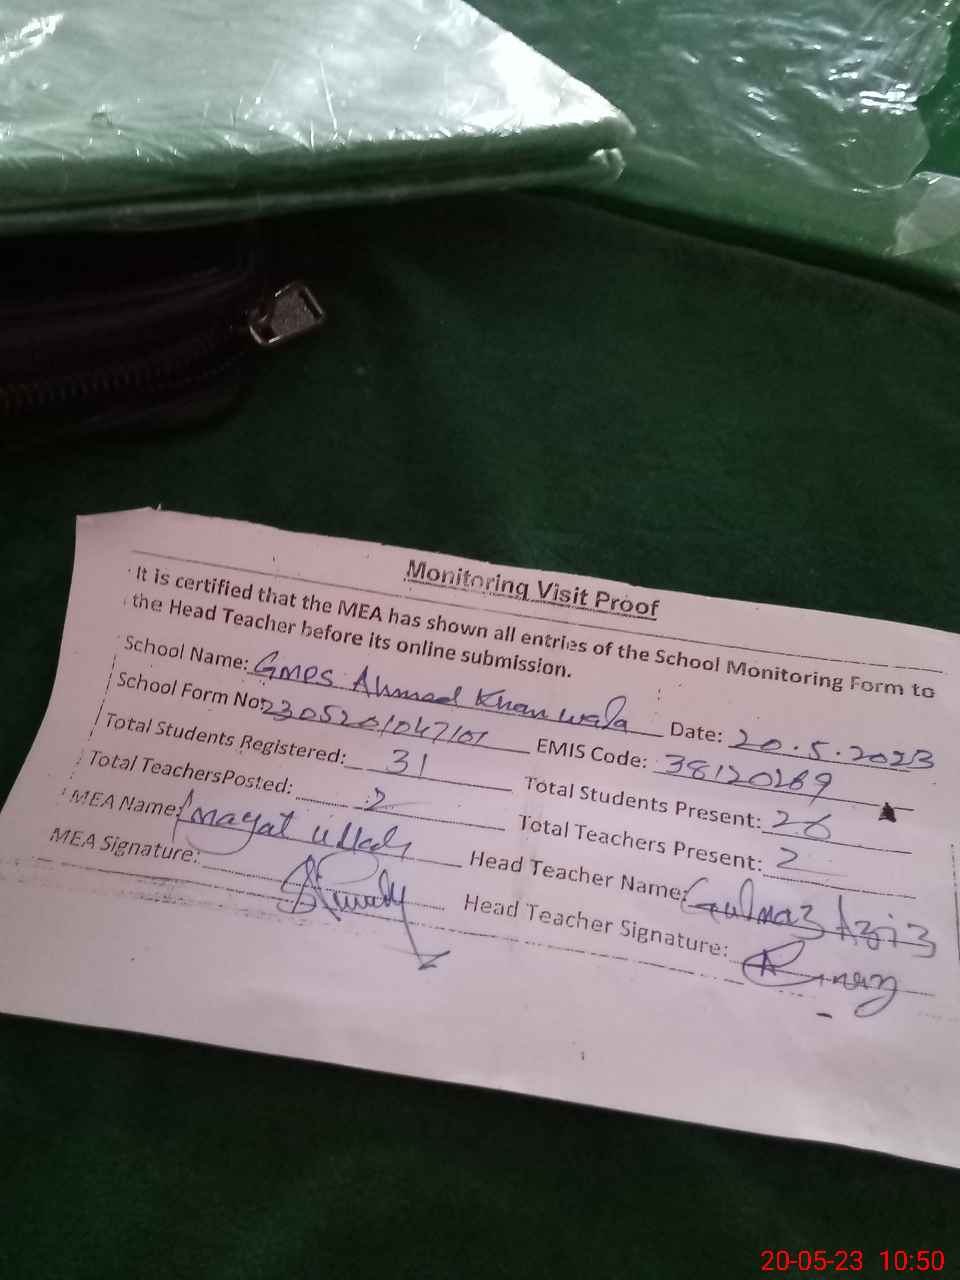 Monitoring Visit Proof
It is certified that the MEA has shown all entries of the School Monitoring Form to
the Head Teacher before its online submission.
School Name: GMPS Ahmed Khan wala Date: 20.5.2023
School Form No: 2305201047101 EMIS Code: 38120269
Total Students Registered: 31 Total Students Present: 26
Total TeachersPosted: 2 Total Teachers Present: 2
MEA Name: Inayat Ullah Head Teacher Name: Gulnaz Aziz
MEA Signature: Head Teacher Signature:
20-05-23 10:50